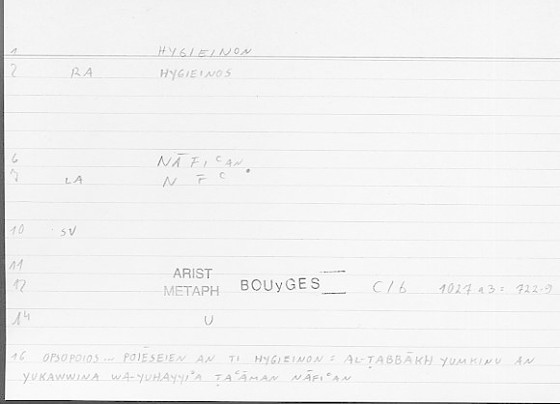 1 HYGIEINON
2 RA HYGIEINOS
6 NĀFIᶜAN
7 LA N F ᶜ
10 SV
11 ARIST
12 METAPH BOUyGES C/b 1027 a 3 = 722.9
14 U
16 OPSOPOIOS ... POIĒSEIEN AN TI HYGIEINON = AL-ṬABBĀKH YUMKINU AN
YUKAWWINA WA-YUHAYYIʾA ṬAᶜĀMAN NĀFIᶜAN